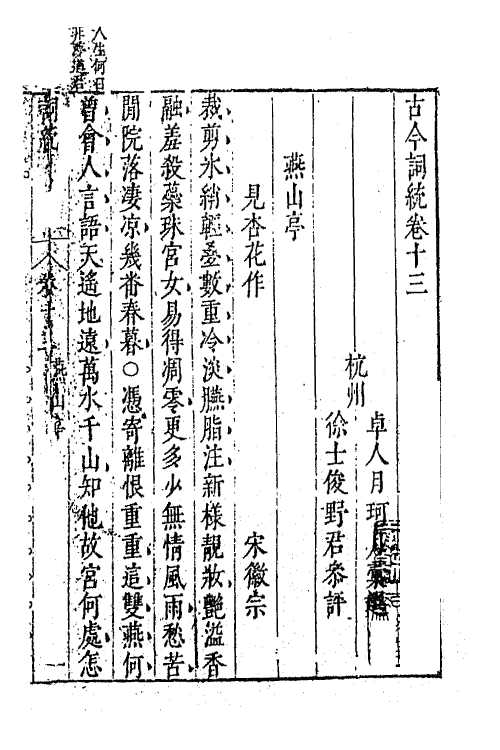 古今詞統卷十三
杭州
卓人月珂月彙選
徐士俊野君叅評
燕山亭
見杏花作
宋徽宗
裁剪氷綃輕疊數重冷淡臙脂注新様靚妝艶溢香
融羞殺蘂珠宮女易得凋零更多少無情風雨愁苦
閒院落凄凉幾畨春暮○憑寄離恨重重這雙燕何
曾會人言語天遙地遠萬水千山知他故宮何處怎
人生何日
非夢遊
詞統
卷十三
燕山亭
一